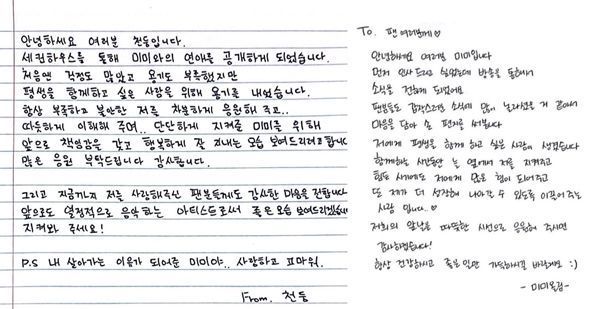 안녕하세요 여러분 천둥입니다.
세컨하우스를 통해 미미와의 연애를 공개하게 되었습니다.
처음엔 걱정도 많았고 용기도 부족했지만
평생을 함께하고 싶은 사람을 위해 용기를 내었습니다.
항상 부족하고 불안한 저를 차분하게 응원해 주고..
따뜻하게 이해해 주며.. 단단하게 지켜준 미미를 위해
앞으로 책임감을 갖고 행복하게 잘 지내는 모습 보여드리려고 합니다
많은 응원 부탁드립니다 감사합니다.
그리고 지금까지 저를 사랑해주신 팬분들께도 감사한 마음을 전합니다
앞으로도 열정적으로 음악하는 아티스트로써 좋은모습 보여드리겠습니다
지켜봐 주세요!
P.S 내 살아가는 이유가 되어준 미미야.. 사랑하고 고마워.
From. 천둥
To. 팬 여러분께♡
안녕하세요 여러분 미미입니다
먼저 인사드리고 싶었는데 방송을 통해서
소식을 전하게 되었어요
팬분들도 갑작스러운 소식에 많이 놀라셨을 거 같아서
마음을 담아 손 편지를 써봅니다
저에게 평생을 함께 하고 싶은 사람이 생겼습니다
함께하는 시간동안 늘 옆에서 저를 지켜주고
힘든 시기에도 저에게 많은 힘이 되어주고
또 제가 더 성장해 나아갈 수 있도록 이끌어주는
사람 입니다..♡
저희의 앞날을 따뜻한 시선으로 응원해 주시면
감사하겠습니다!
항상 건강하시고 좋은일만 가득하시길 바랄게요 :)
- 미미올림-